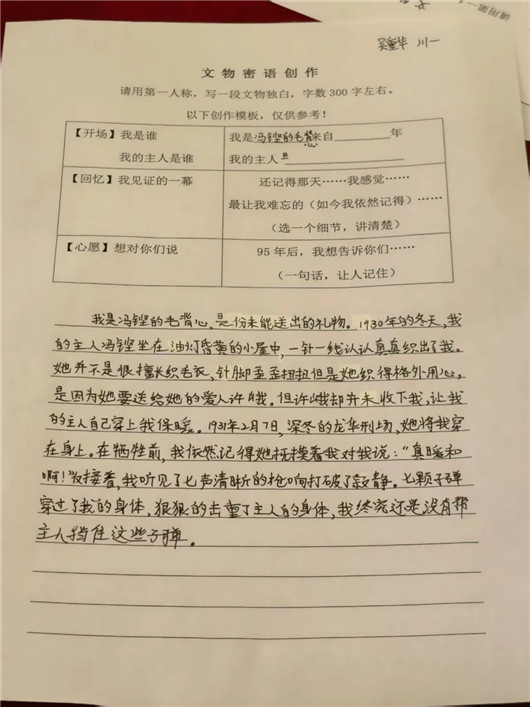 请用第一人
吴重华 川一
文物密语创作
请用第一人称，写一段文物独白，字数300字左右。
以下创作模板，仅供参考！
【开场】我是谁 我是冯铿的毛背心来自________年
我的主人是谁 我的主人是________
【回忆】我见证的一幕 还记得那天……我感觉……
最让我难忘的（如今我依然记得）……
（选一个细节，讲清楚）
【心愿】想对你们说 95年后，我想告诉你们……
（一句话，让人记住）
我是冯铿的毛背心，是份未能送出的礼物。1930年的冬天，我
的主人冯铿坐在油灯昏黄的小屋中，一针一线认认真真织出了我。
她并不是很擅长织毛衣，针脚歪歪扭扭但是她织得格外用心。
是因为她要送给她的爱人许峨。但许峨却并未收下我，让我
的主人自己穿上我保暖。1931年2月7日，深冬的龙华刑场，她将我穿
在身上。在牺牲前，我依然记得她抚摸着我对我说：“真暖和
啊！”紧接着，我听见了七声清晰的枪响打破了寂静。七颗子弹
穿过了我的身体，狠狠的击重了主人的身体，我终究还是没有帮
主人挡住这些子弹。